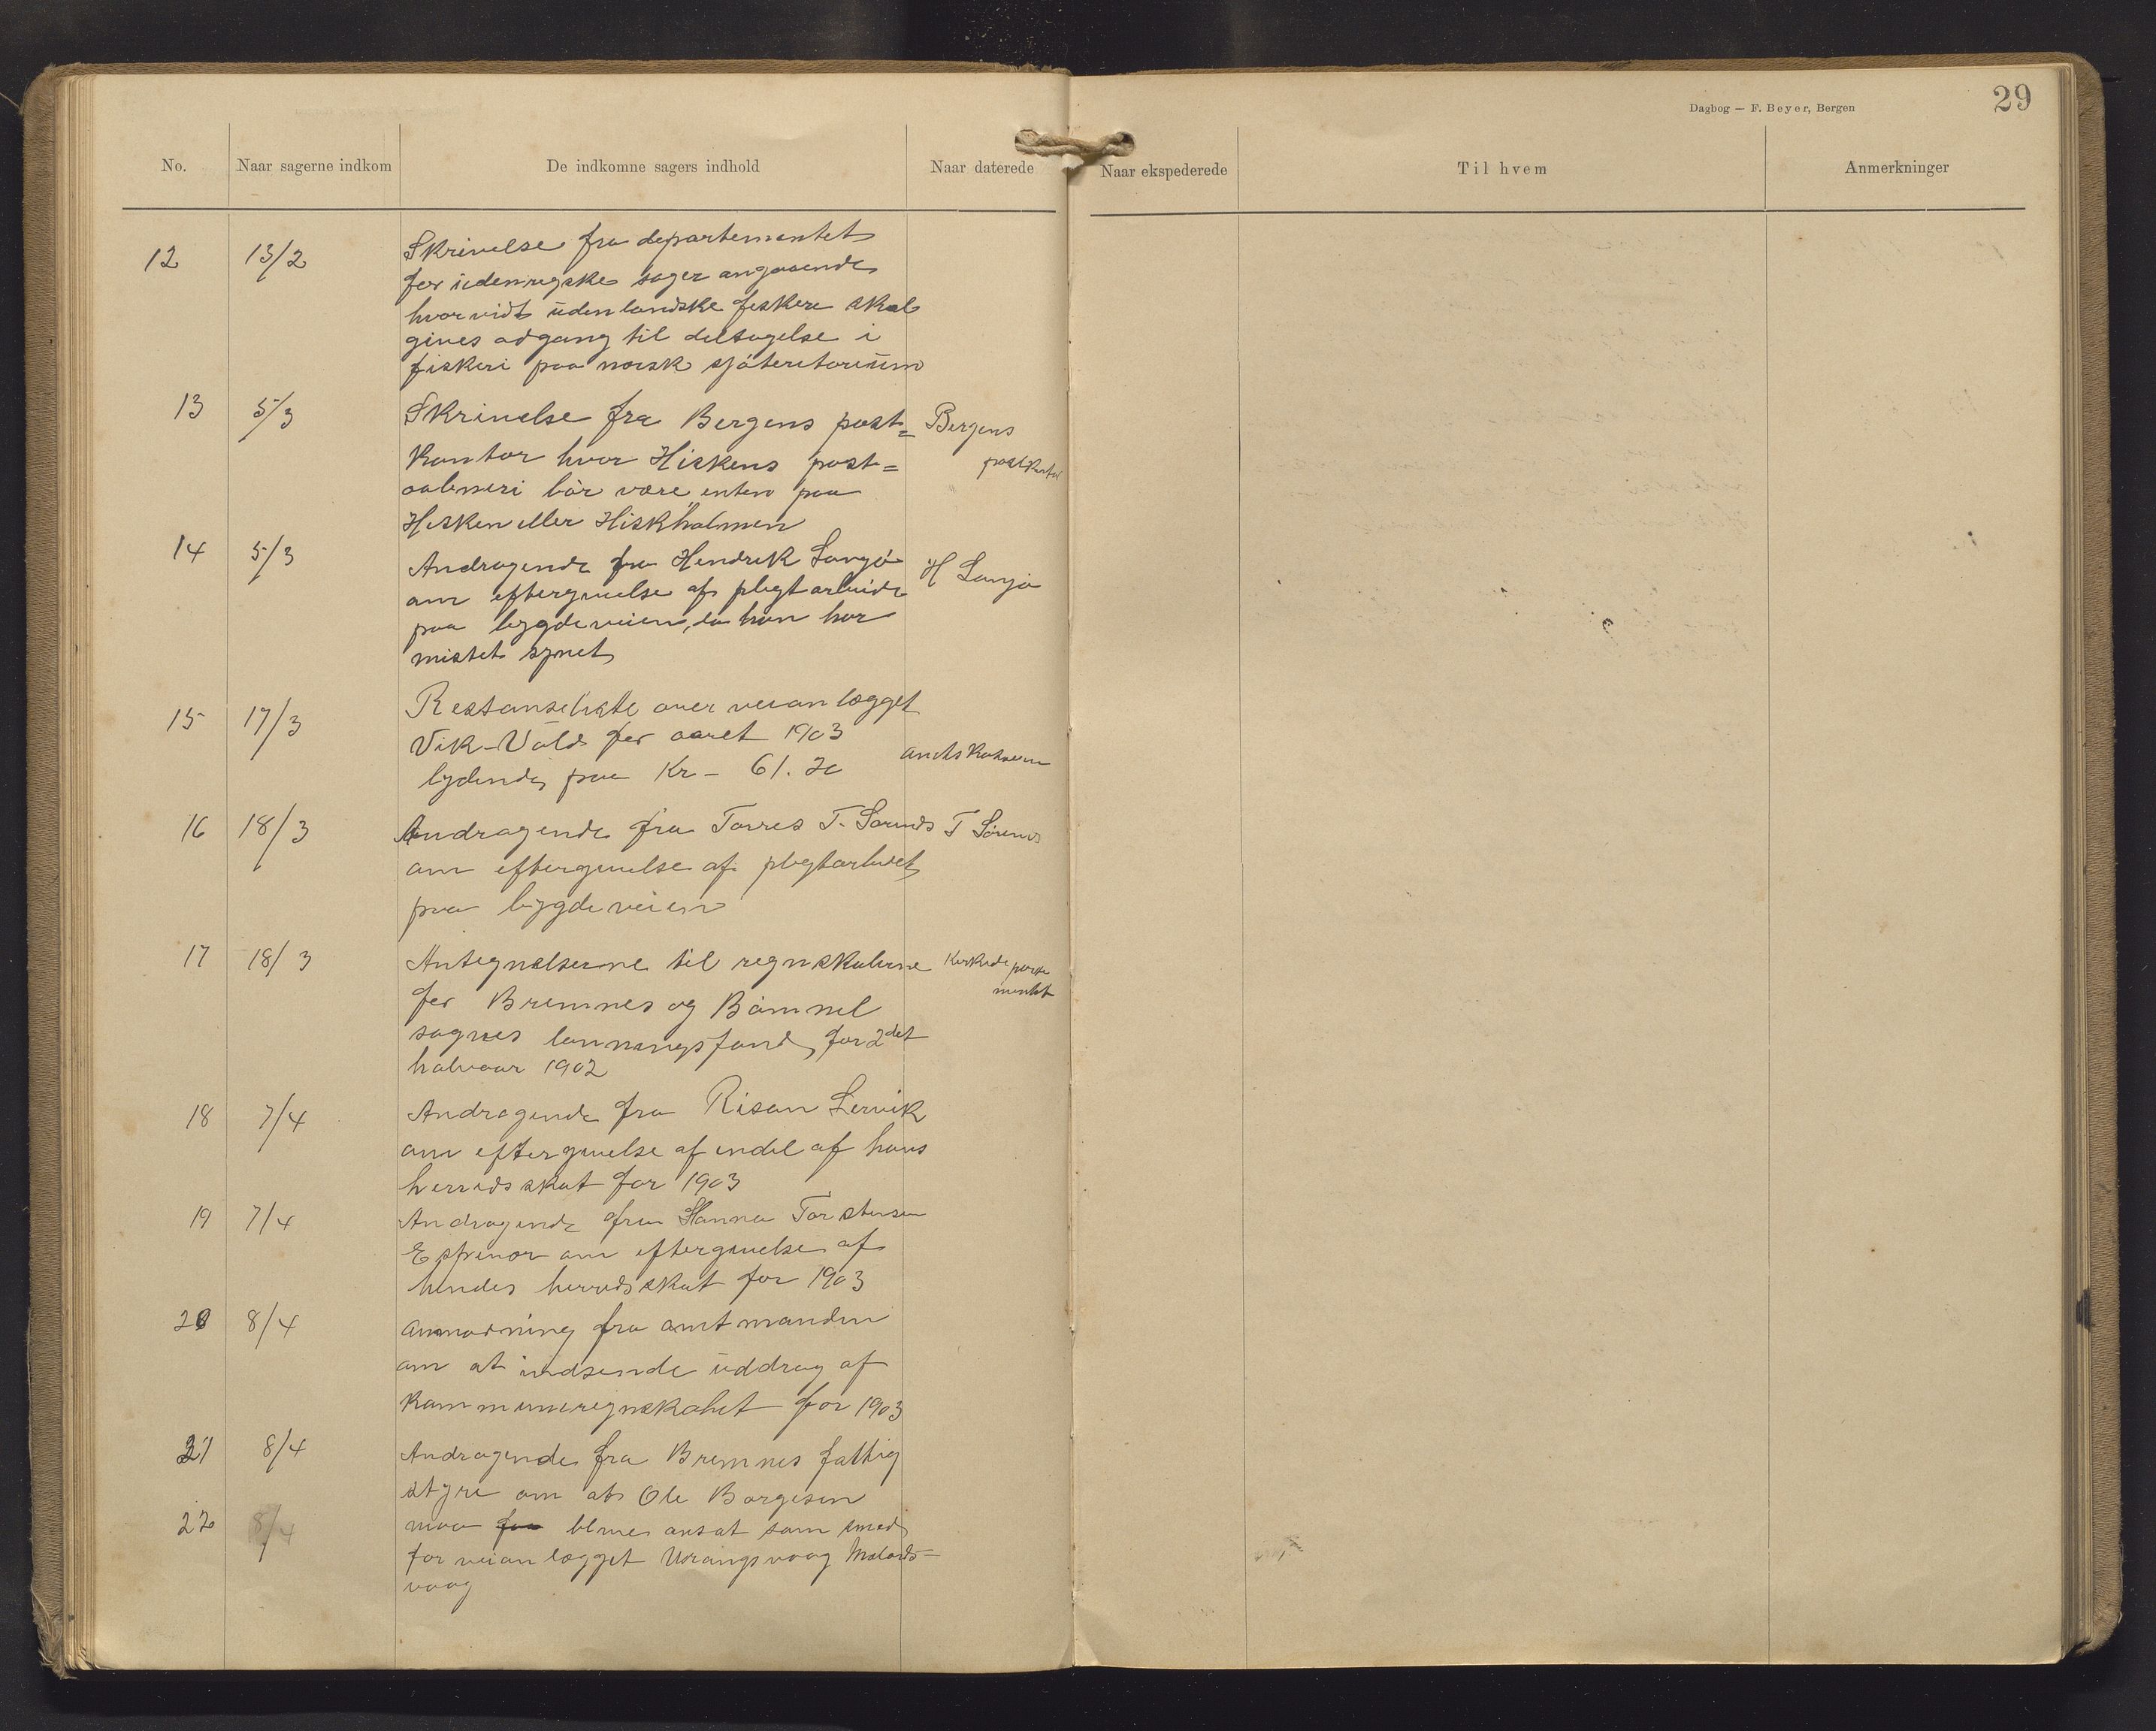 Dagbog — F. Beyer, Bergen
29
No.
Naar sagerne indkom
De indkomne sagers indhold
Naar daterede
Naar ekspederede
Til hvem
Anmerkninger
12 13/2 Skrivelse fra departementet
for udenrigske sager angaaende
hvorvidt udenlandske fiskere skal
gives adgang til deltagelse i
fiskeri paa norsk sjøteritorium
13 5/3 Skrivelse fra Bergens post= Bergens
kontor hvor Hiskens post= postkontor
aabneri bør være enten paa
Hisken eller Hiskholmen
14 5/3 Andragende fra Hendrik Langø H Langø
om eftergivelse af pligtarbeide
paa bygdeveien, da han har
mistet synet
15 17/3 Restanseliste over veianlægget
Vik-Vold for aaret 1903
lydende paa Kr - 61.20
16 18/3 Andragende fra Torres T. Sørends T Sørends
om eftergivelse af pligtarbeidet
paa bygdeveien
17 18/3 Antegnelserne til regnskaberne Kirkedeparte
for Bremnes og Bømmel mentet
sognes lønningsfond for 2det
halvaar 1902
18 7/4 Andragende fra Risan Lervik
om eftergivelse af endel af hans
herredsskat for 1903
19 7/4 Andragende fra Hanna Torstensen
Espevær om eftergivelse af
hendes herredsskat for 1903
20 8/4 Anmodning fra amtmanden
om at indsende uddrag af
kommuneregnskabet for 1903
21 8/4 Andragende fra Bremnes fattig
styre om at Ole Børgesen
22 8/4 maa faa blive ansat som smed
for veianlægget Urangsvaag
vaag